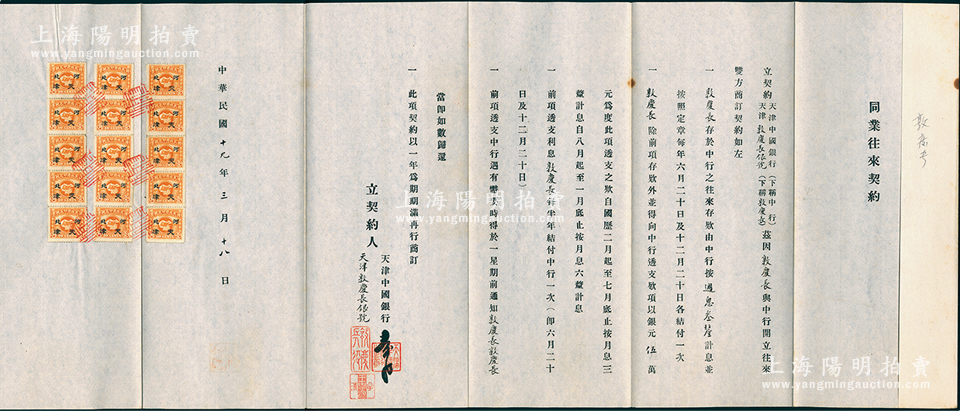 敦慶長
同業往來契約
立契約 天津中國銀行(下稱中行) 天津敦慶長銀號(下稱敦慶長) 茲因敦慶長與中行開立往來
雙方商訂契約如左
一 敦慶長存於中行之往來存欵由中行按週息叁釐計息並
按照定章每年六月二十日及十二月二十日各結付一次
一 敦慶長除前項存欵外並得向中行透支欵項以銀元伍萬
元爲度此項透支之欵自國歷二月起至七月底止按月息三
釐計息自八月起至一月底止按月息六釐計息
一 前項透支利息敦慶長每半年結付中行一次(卽六月二十
日及十二月二十日)
一 前項透支中行遇有需要時得於一星期前通知敦慶長敦慶長
當卽如數歸還
一 此項契約以一年爲期期滿再行商訂
立契約人 天津中國銀行
天津敦慶長銀號
中華民國十九年三月十八日
河北
天津
河北
天津
河北
天津
河北
天津
河北
天津
河北
天津
河北
天津
河北
天津
河北
天津
河北
天津
河北
天津
河北
天津
河北
天津
河北
天津
河北
天津
上海陽明拍賣
www.yangmingauction.com
上海陽明拍賣
www.yangmingauction.com
上海陽明拍賣
www.yangmingauction.com